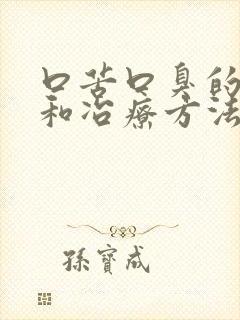 口苦口臭的
和治療方法
孫寶成